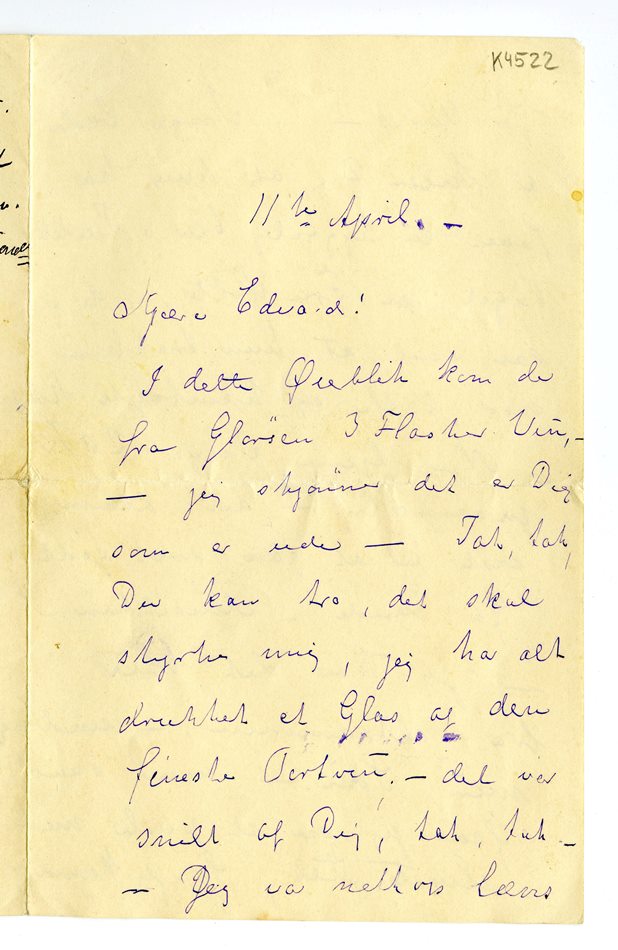 K4522
11te April. –
Kjære Edvard!
I dette Øieblik kom de
fra Larsen 3 Flasker Vin, –
– jeg skjønner det er Dig
som er ude – Tak, tak,
Du kan tro, det skal
styrke mig, jeg har alt
drukket et Glas af den
fineste Portvin, – det var
snilt af Dig, tak, tak –
– Jeg var netop